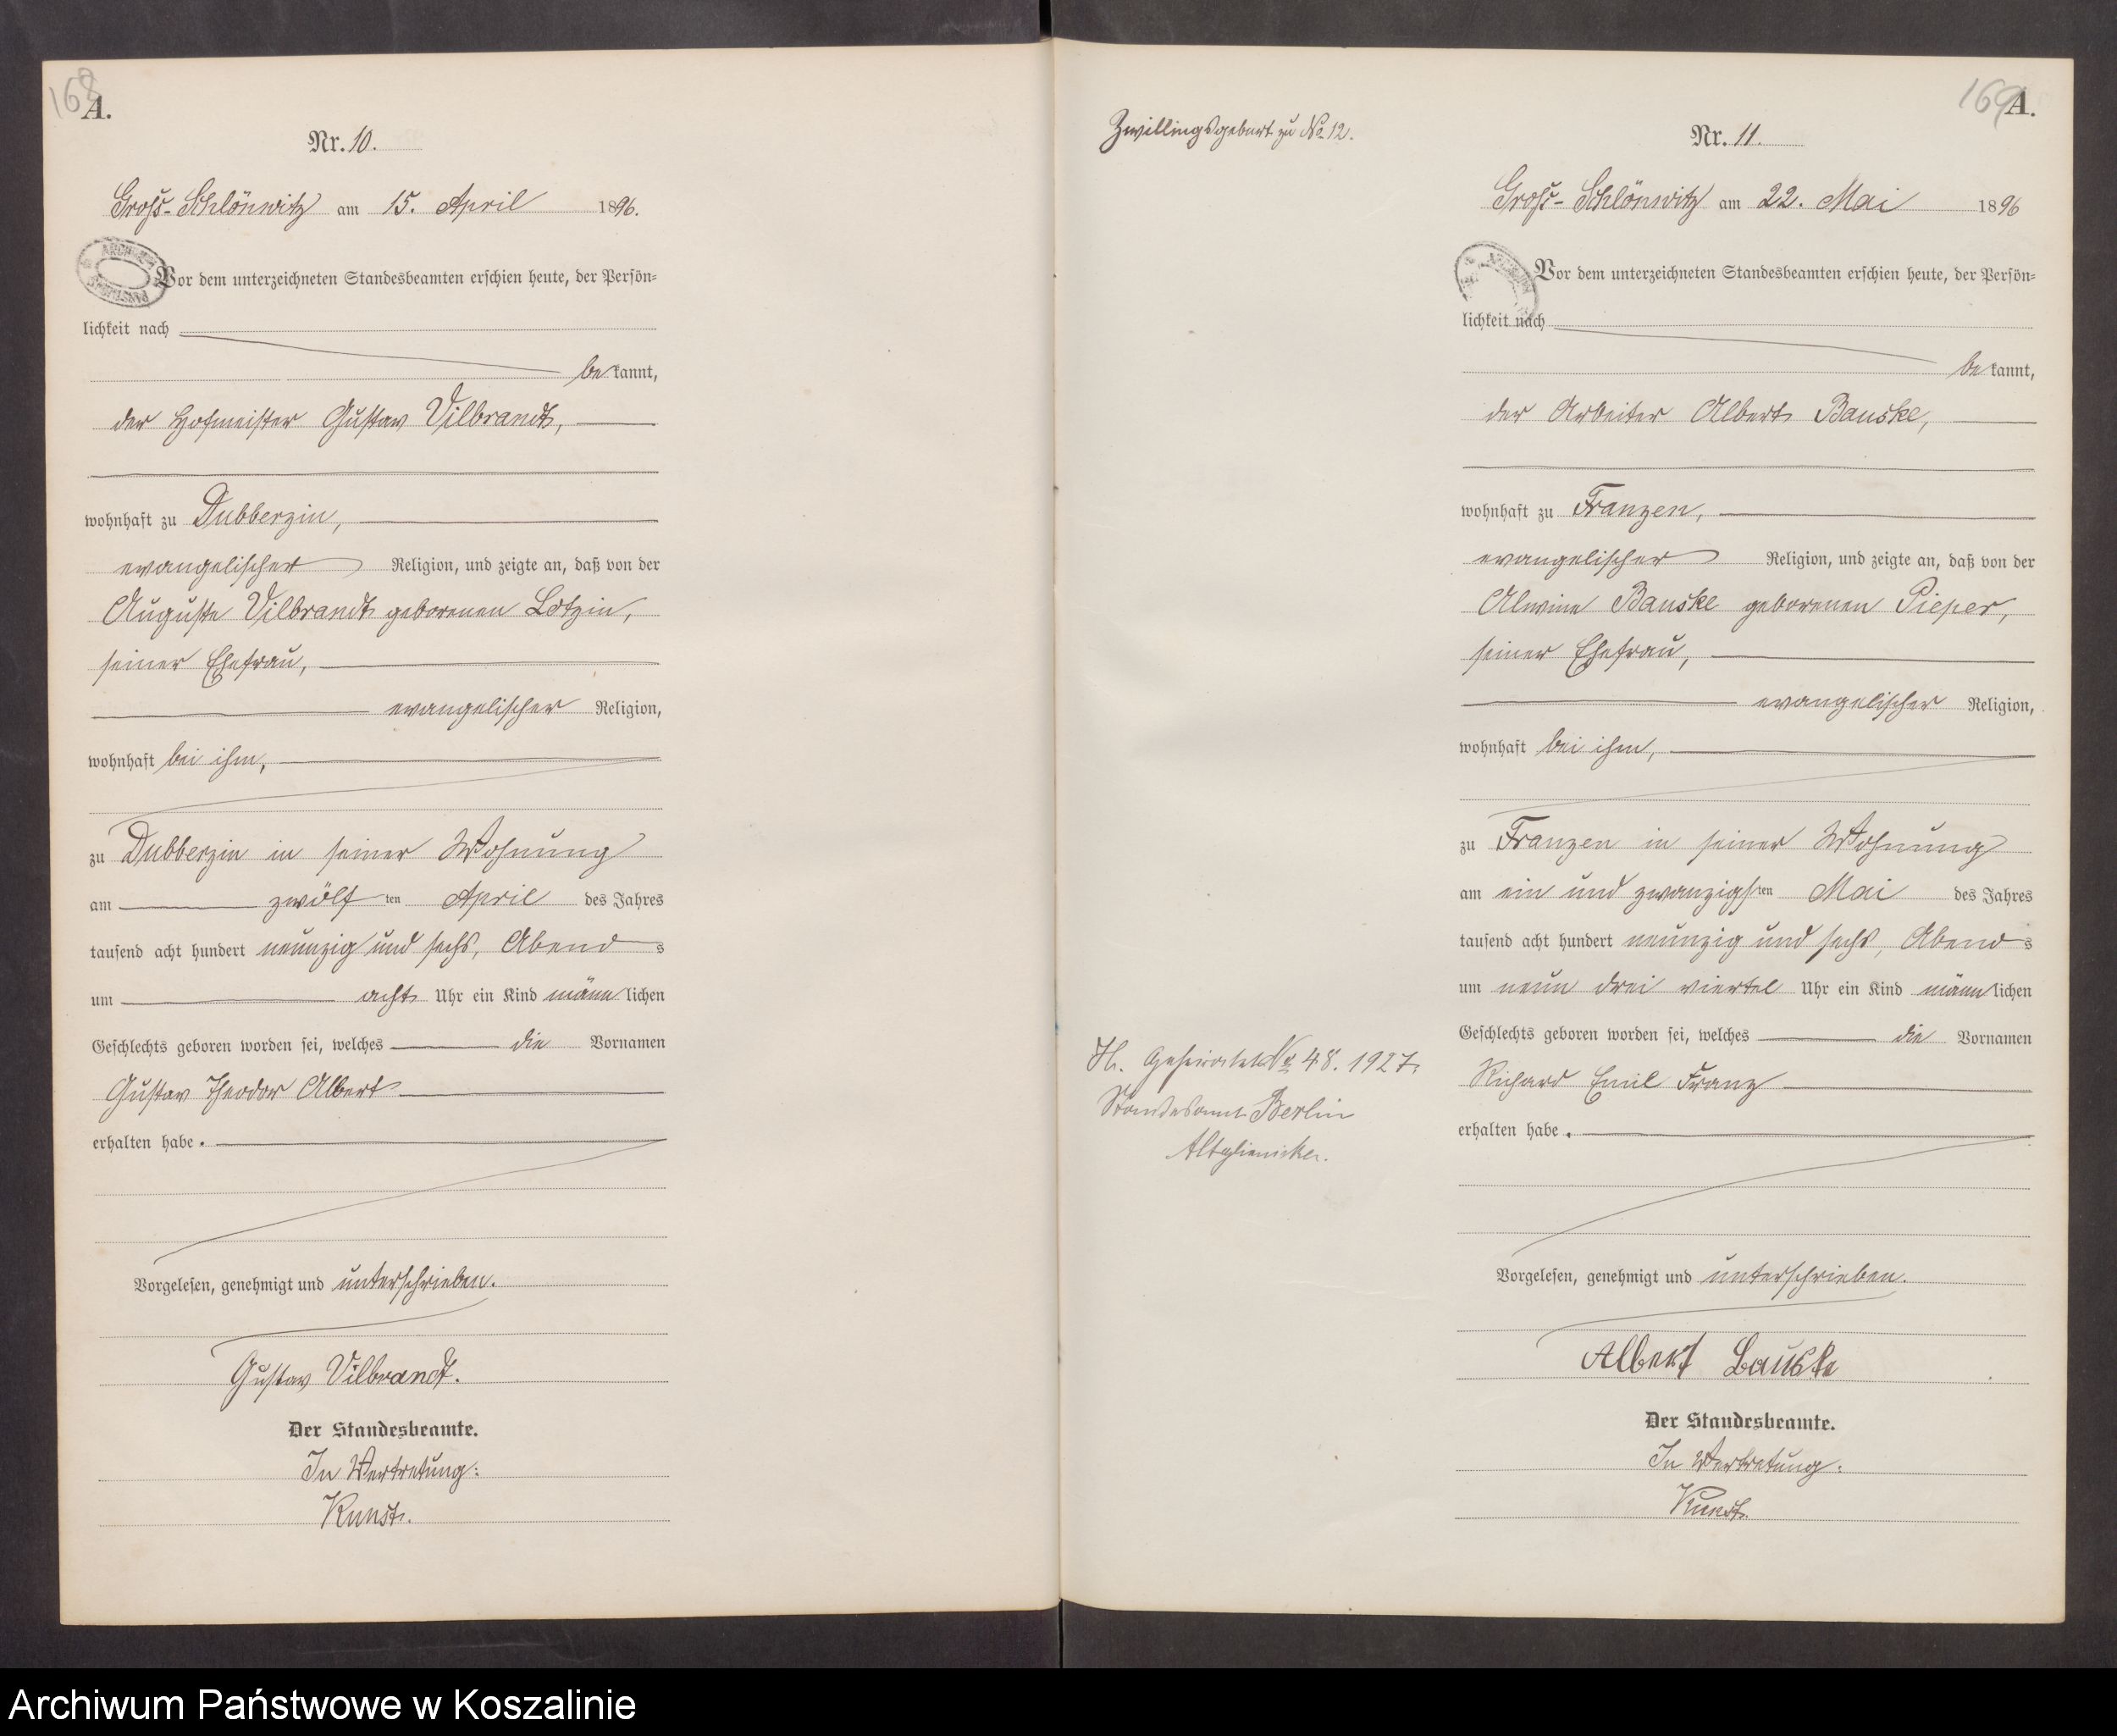 168
A.
Nr. 10.
Groß-Schlönwitz am 15. April 1896.
Vor dem unterzeichneten Standesbeamten erschien heute, der Persön-
lichkeit nach
bekannt,
der Hofmeister Gustav Vilbrandt,
wohnhaft zu Dubberzin,
evangelischer Religion, und zeigte an, daß von der
Auguste Vilbrandt geborenen Lotzin,
seiner Ehefrau,
evangelischer Religion,
wohnhaft bei ihm,
zu Dubberzin in seiner Wohnung
am zwölf ten April des Jahres
tausend acht hundert neunzig und sechs, Abends
um acht Uhr ein Kind männlichen
Geschlechts geboren worden sei, welches die Vornamen
Gustav Theodor Albert
erhalten habe.
Vorgelesen, genehmigt und unterschrieben.
Gustav Vilbrandt.
Der Standesbeamte.
In Vertretung:
Kunst.
169
A.
Zwillingsgeburt zu No 12.
Nr. 11.
Groß-Schlönwitz am 22. Mai 1896
Vor dem unterzeichneten Standesbeamten erschien heute, der Persön-
lichkeit nach
bekannt,
der Arbeiter Albert Bauske,
wohnhaft zu Franzen,
evangelischer Religion, und zeigte an, daß von der
Alwine Bauske geborenen Pieper,
seiner Ehefrau,
evangelischer Religion,
wohnhaft bei ihm,
zu Franzen in seiner Wohnung
am ein und zwanzigsten Mai des Jahres
tausend acht hundert neunzig und sechs, Abends
um neun drei viertel Uhr ein Kind männlichen
Geschlechts geboren worden sei, welches die Vornamen
Richard Emil Franz
erhalten habe.
H. Geheiratet No 48. 1927.
Standesamt Berlin
Altglienicke.
Vorgelesen, genehmigt und unterschrieben.
Albert Bauske
Der Standesbeamte.
In Vertretung:
Kunst.
Archiwum Państwowe w Koszalinie